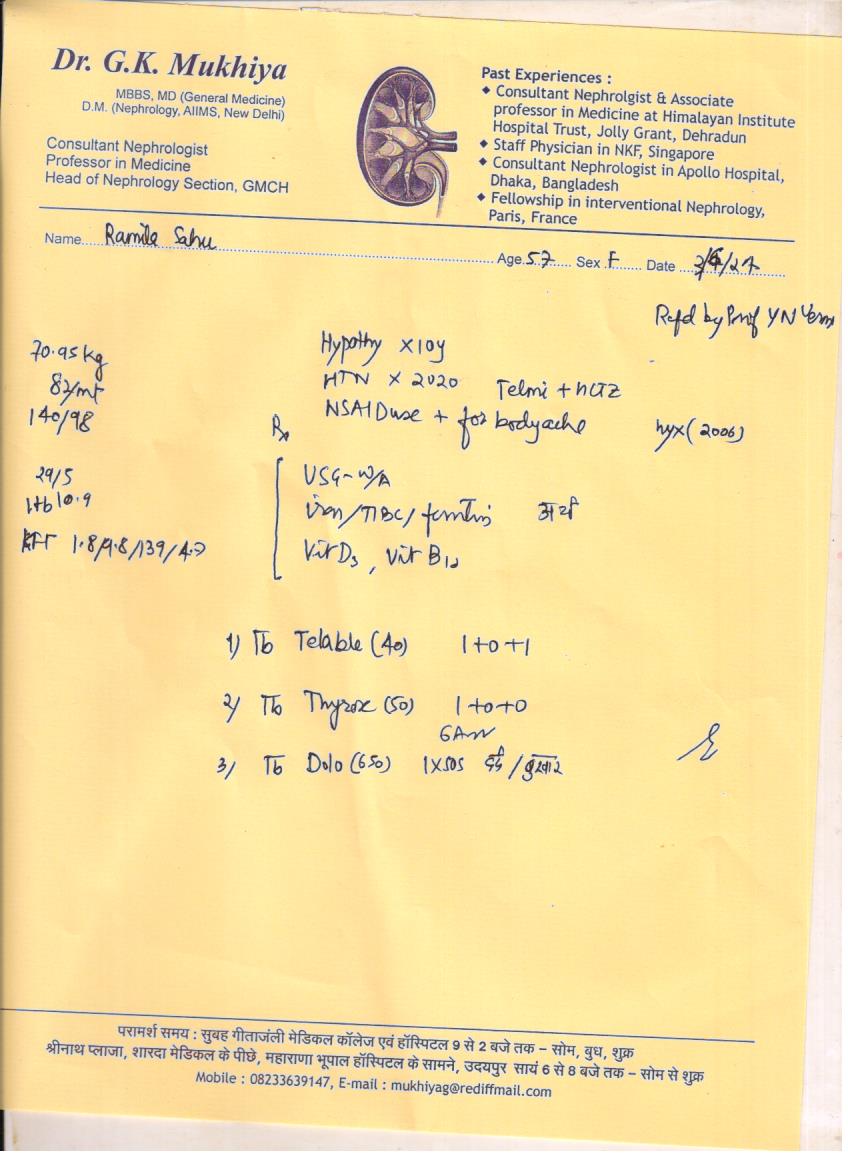 Dr. G.K. Mukhiya
MBBS, MD (General Medicine)
D.M. (Nephrology, AIIMS, New Delhi)
Consultant Nephrologist
Professor in Medicine
Head of Nephrology Section, GMCH
Past Experiences :
◆ Consultant Nephrolgist & Associate
professor in Medicine at Himalayan Institute
Hospital Trust, Jolly Grant, Dehradun
◆ Staff Physician in NKF, Singapore
◆ Consultant Nephrologist in Apollo Hospital,
Dhaka, Bangladesh
◆ Fellowship in interventional Nephrology,
Paris, France
Name Ramila Sahu Age 57 Sex F Date
Refd by Prof YN
70.95 kg
82/mt
140/98
Hypothy x 10y
HTN x 2020 Telmi + HCTZ
NSAID use + for bodyache hyx (2006)
Rx
29/5
Hb 10.9
1.8/9.8/139/4.7
USG - W/A
iron/TIBC/ferritin
Vit D3, Vit B12
1) Tb Telable (40) 1+0+1
2) Tb Thyrox (50) 1+0+0
6 AM
3) Tb Dolo (650) 1 x SOS दर्द / बुखार
परामर्श समय : सुबह गीताजंली मेडिकल कॉलेज एवं हॉस्पिटल 9 से 2 बजे तक – सोम, बुध, शुक्र
श्रीनाथ प्लाजा, शारदा मेडिकल के पीछे, महाराणा भूपाल हॉस्पिटल के सामने, उदयपुर सायं 6 से 8 बजे तक – सोम से शुक्र
Mobile : 08233639147, E-mail : mukhiyag@rediffmail.com